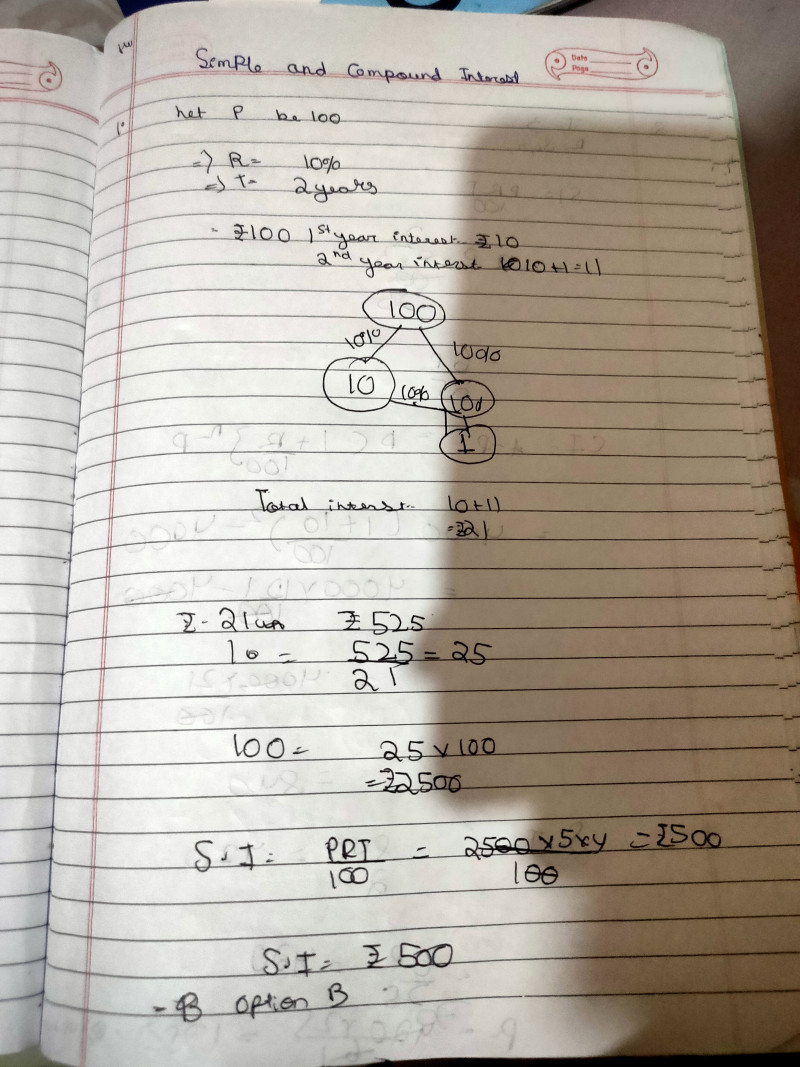 Simple and Compound Interest
Date
Page
1.
Let P be 100
=> R= 10%
=> T= 2 years
= ₹100 1st year interest ₹10
2nd year interst 10+1=11
100
10% 10%
10 10% 10
1
Total interst 10+11
=₹21
₹-21 ₹525
= 525 = 25
21
100= 25×100
=₹2500
S.I= PRT = 2500×5×4 =₹500
100 100
S.I= ₹500
- option B